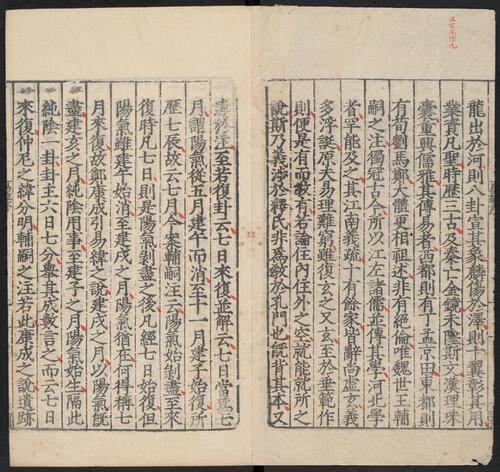 龍出於河則八卦宣其象麟傷於澤則十翼彰其用
業資凡聖時歷三古及秦亡金鏡未墜斯文漢理珠
囊重興儒雅其傳易者西都則有丁孟京田東都則
有荀劉馬鄭大體更相祖述非有絕倫唯魏世王輔
嗣之注獨冠古今所以江左諸儒並傳其學河北學
者罕能及之其江南義疏十有餘家皆辭尚虛玄義
多浮誕原夫易理難窮雖復玄之又玄至於垂範作
則便是有而教有若論住內住外之空就能就所之
說斯乃義涉於釋氏非為教於孔門也既背其本又
違於注至若復卦云七日來復並解云七日當為七
月謂陽氣從五月建午而消至十一月建子始復所
歷七辰故云七月今案輔嗣注云陽氣始剝盡至來
復時凡七日則是陽氣剝盡之後凡經七日始復但
陽氣雖建午始消至建戌之月陽氣猶在何得稱七
月來復故鄭康成引易緯之說建戌之月以陽氣既
盡建亥之月純陰用事至建子之月陽氣始生隔此
純陰一卦卦主六日七分舉其成數言之而云七日
來復仲尼之緯分明輔嗣之注若此康成之說遺跡